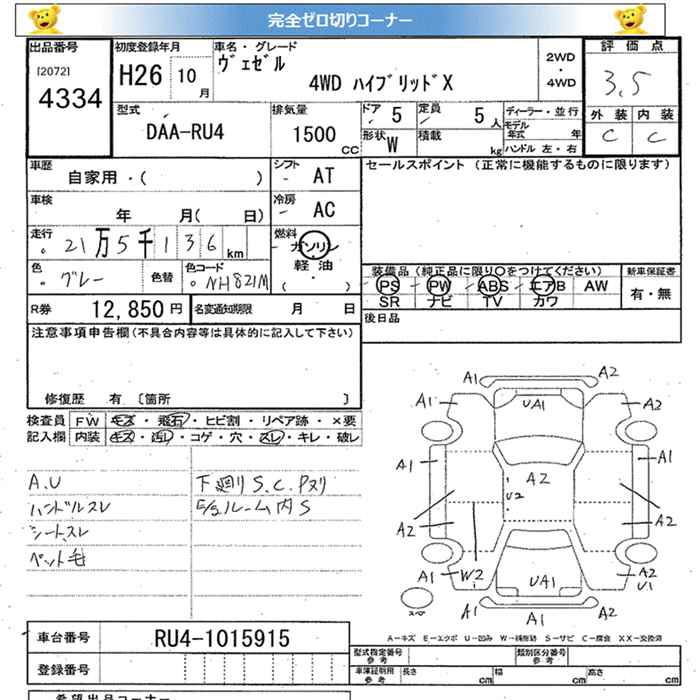 完全ゼロ切りコーナー
出品番号
[2072]
4334
初度登録年月
H26 10月
車名・グレード
ヴェゼル
4WD ハイブリッドX
2WD
・
4WD
評価点
3.5
外装 内装
C C
型式
DAA-RU4
排気量
1500 CC
ドア 5
定員 5人
形状 W
積載 kg
ディーラー・並行
モデル年式 年
ハンドル 左・右
車歴
自家用・( )
シフト AT
セールスポイント (正常に機能するものに限ります)
車検
年 月( 日)
冷房 AC
走行
21万5千136km
燃料
ガソリン
・
軽油
( )
色 グレー
色替
色コード NH821M
装備品(純正品に限り○をつけてください)
PS PW ABS エアB AW
SR ナビ TV カワ
新車保証書
有・無
R券 12,850円
名変通知期限 月 日
後日品
注意事項申告欄(不具合内容等は具体的に記入して下さい)
修復歴 有 〔箇所 〕
検査員記入欄
FW キズ・飛石・ヒビ割・リペア跡・×要
内装 キズ・汚レ・コゲ・穴・スレ・キレ・破レ
A.U
ハンドルスレ
シートスレ
ペット毛
下廻りS.C.Pヌリ
E/gルーム内S
A1 A2
A1 UA1 A2
A1 A2 U2 A1
A2 A2
A1 W2 UA1 A2 U1
スペア A1 A1 A2
A-キズ E-エクボ U-凹み W-補修跡 S-サビ C-腐食 XX-交換済
車台番号 RU4-1015915
登録番号
型式指定番号 参考
類別区分番号 参考
車庫証明用 参考 長さ cm 幅 cm 高さ cm
希望出品コーナー